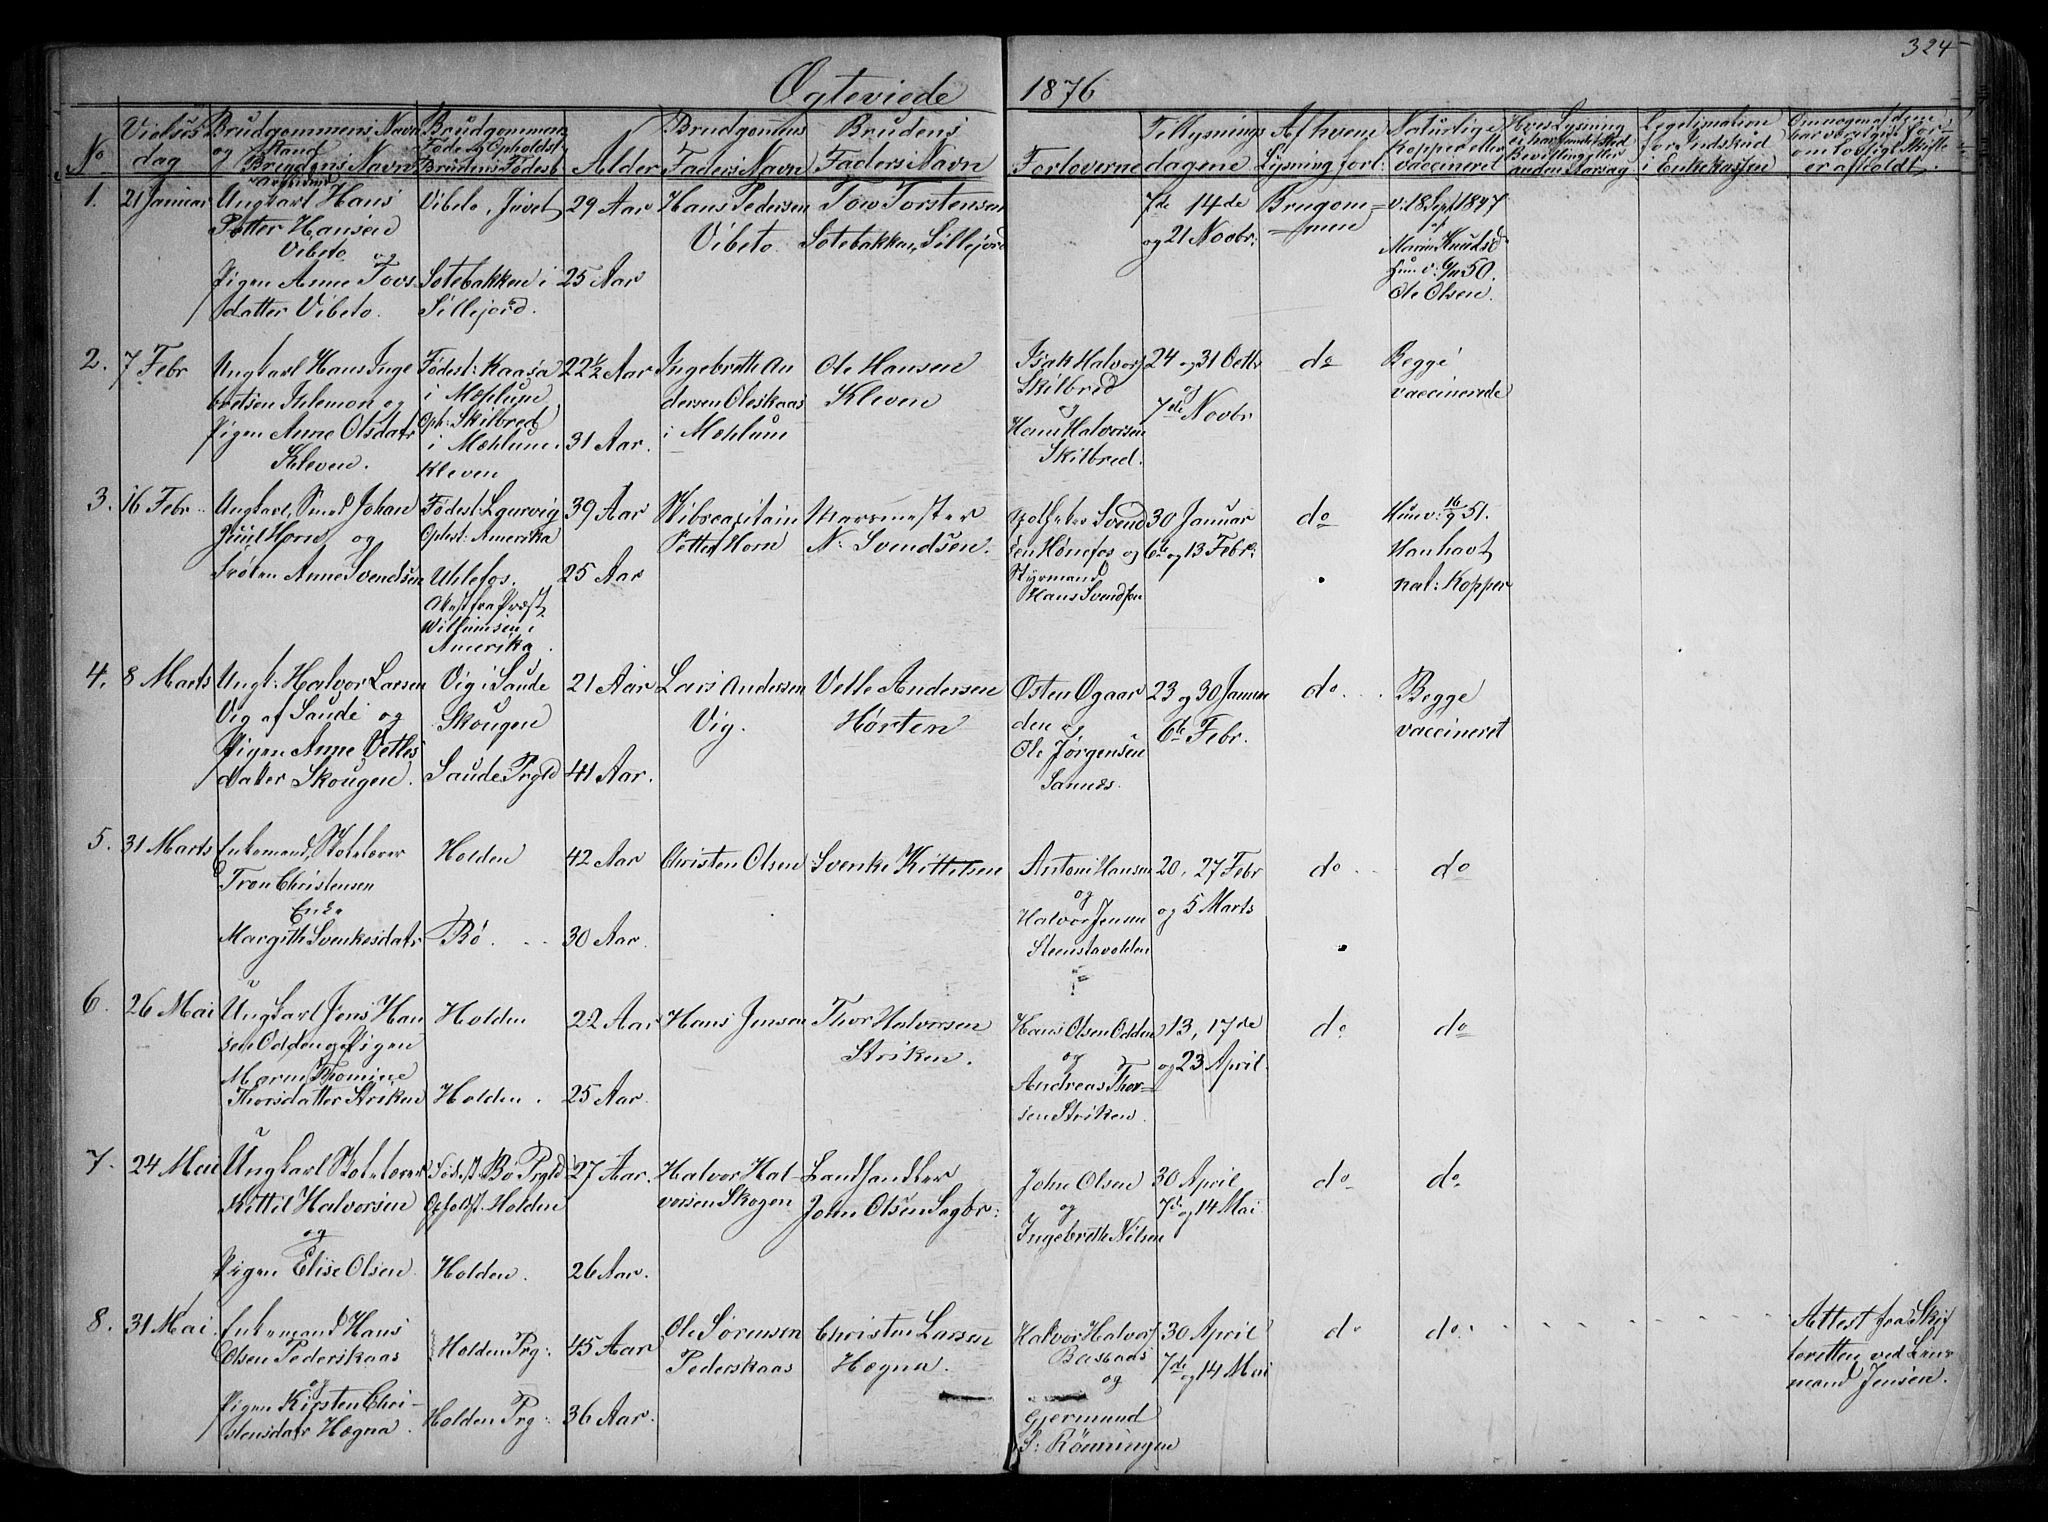 324
Ogteviede 1876
No
Vielses
dag
Brudgommens Navn
og Stand
Brudens Navn
Brudgommens
Føde og Opholdst
Brudens Fødest
Alder
Brudgomens
Faders Navn
Brudens
Faders Navn
Forloverne
Tillysnings
dagene
Af hvem
Lysning forl:
Naturlige
Kopper eller
vaccineret
Hvis Lysning
ei har fundet Sted
Bevilling eller
anden Aarsag
Legetimation
for Indskud
i Enkekassen
1.
21 Januar
Ungkarl Hans
Petter Hansen
Vibeto og
Pigen Anne Tovs
datter Vibeto.
Vibeto, Juvet
Sotebakken i
Sillejord.
29 Aar
25 Aar
Hans Pedersen
Vibeto
Tov Torstensen
Sotebakken, Sillejord
7de 14de
og 21 Novbr.
Brugom=
=mene
v: 18 Sept 1847
af
Maren Knudsd
hun v: 6/11 50.
Ole Olsen.
2.
7 Febr
Ungkarl Hans Inge
bretsen og
Pigen Anne Olsdatr
Kleven.
Fødest: Kaasa
i Mæhlum
Oph: Skilbred
i Mæhlum.
Kleven
22½ Aar
31 Aar.
Ingebreth An
dersen Oleskaas
i Mæhlum
Ole Hansen
Kleven
Isak Halvors
Skilbred
og
Hans Halvorsen
Skilbred.
24 og 31 Octbr
og
7de Novbr
do
Begge
vaccinerede
3.
16 Febr
Ungkarl, Smed Johan
Juul Horn og
Frøken Anne Svendsen
Fødest: Laurvig
Ophst: Amerika
Uhlefos.
Atest fra Præst
Willumsen i
Amerika.
39 Aar
25 Aar
Skibscapitain
Petter Horn
N: Svendsen.
Svend
sen Hønefos og
Styrmand
Hans Svendsen
30 Januar
6te og 13 Febr:
do
Hun v: 16/9 51.
Han havt
nat: Kopper
4.
8 Marts
Ungk: Halvor Larsen
Vig af Saude og
Pigen Anne Vetles
datter Skougen.
Vig i Saude
Skougen
Saude Prgld
21 Aar
41 Aar.
Lars Andersen
Vig.
Vetle Andersen
Hørten
Osten Ogaar
den og
Ole Jørgensen
Sannes.
23 og 30 Januar
6te Febr.
do.
Begge
vaccineret
5.
31 Marts
Enkemand, Skolelærer
Tron Christensen
Enke
Margith Svenkesdatr
Holden
Bø.
42 Aar
30 Aar.
Christen Olsen
Svenke Kittelsen
Antoni Hansen
og
Halvor Jensen
Steenstavolden
20, 27 Febr
og 5 Marts
do
do
6.
26 Mai
Ungkarl Jens Han
sen Odden og Pigen
Maren Thomine
Thorsdatter Striken
Holden
Holden.
22 Aar
25 Aar.
Hans Jensen
Thor Halvorsen
Striken.
Hans Olsen Odden
og
Andreas Thor=
sen Striken.
13, 17de
og 23 April.
do
do
7.
24 Mai
Ungkarl Skolelærer
Kittil Halvorsen
og
Pigen Elise Olsen.
Fødest. Bø Prgld
Opholdst. Holden
Holden.
27 Aar.
26 Aar.
Halvor Hal-
vorsen Skogen
Landhandler
John Olsen Sagbr:
John Olsen
og
Ingebreth Nilsen
30 April
7de og 14 Mai
do
do
8.
31 Mai.
Enkemand Hans
Olsen Pederskaas
og
Pigen Kirsten Chri-
stensdatr Hægna.
Holden Prg:
Holden Prg:
45 Aar
36 Aar.
Ole Sørensen
Pederskaas
Christen Larsen
Hægna.
Halvor Halvors
og
Gjermund
S: Rönningen
30 April
7de og 14 Mai
do
do.
Attest fra Skif
teretten ved Lens
mand Jensen.